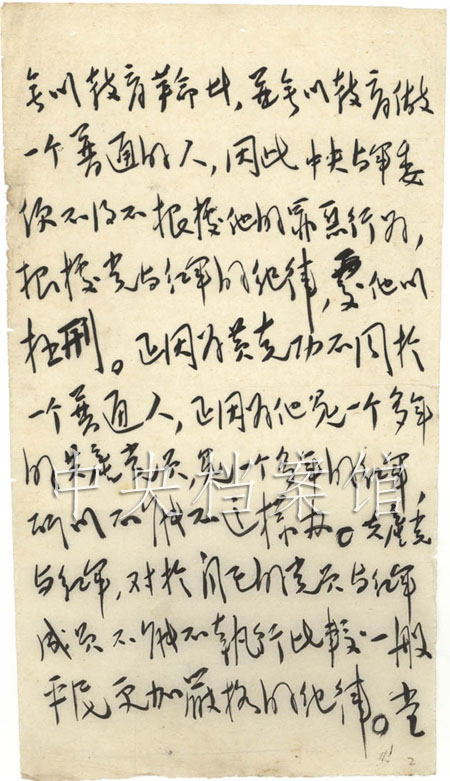 无以教育革命者，並无以教育做
一个普通的人，因此中央与军委
便不得不根据他的罪恶行为，
根据党与红军的纪律，处他以
极刑。正因为黄克功不同於
一个普通人，正因为他是一个多年
的共产党员，是一个多年的红军，
所以不能不这样办。共产党
与红军，对於自己的党员与红军
成员不能不執行比較一般
平民更加嚴格的纪律。当
中央档案馆
2